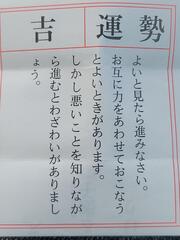 吉運勢
よいと見たら進みなさい。
お互に力をあわせておこなう
とよいときがあります。
しかし悪いことを知りなが
ら進むとわざわいがありまし
ょう。